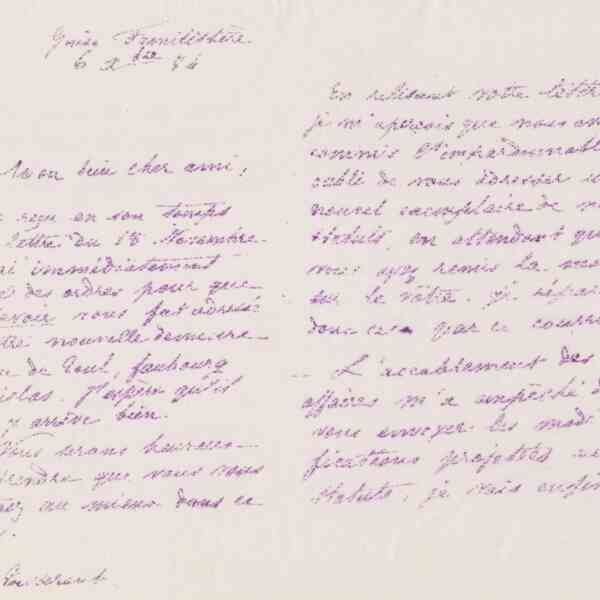 Guise Familistère
6 Xbre 84
Mon bien cher ami,
reçu en son temps
lettre du 18 Novembre.
ai immédiatement
é des ordres pour que
Devoir vous fut adressé
nouvelle demeure
de Toul, faubourg
J'espère qu'il
y arrive bien.
Nous serons heureux
prendre que vous vous
ez au mieux dans ce
En relisant votre lettre
je m'aperçois que nous av
commis l'impardonnable
oubli de vous adresser u
nouvel exemplaire de n
statuts, en attendant que
vous ayez remis la ma
sur le vôtre. je répare
donc par ce courri
L'accablement des
affaires m'a empêché d
vous envoyer les modi
fications projetées
statuts. je vais enfin